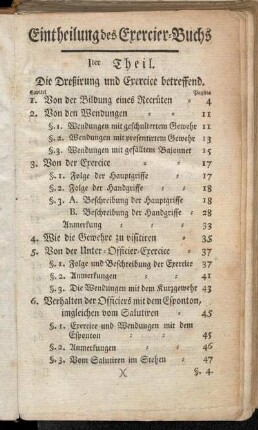 Eintheilung des Exercier-Buchs
Iter Theil.
Die Dreßirung und Exercice betreffend.
Capitel Pagina
1. Von der Bildung eines Recrüten = 4
2. Von den Wendungen = = 11
§. 1. Wendungen mit geschultertem Gewehr 11
§. 2. Wendungen mit presentirtem Gewehr 13
§. 3. Wendungen mit gefälltem Bajonnet 15
3. Von der Exercice = = 17
§. 1. Folge der Hauptgriffe = 17
§. 2. Folge der Handgriffe = = 18
§. 3. A. Beschreibung der Hauptgriffe = 18
B. Beschreibung der Handgriffe = 28
Anmerkung = = 33
4. Wie die Gewehre zu visitiren = 35
5. Von der Unter-Officier-Exercice = 37
§. 1. Folge und Beschreibung der Exercice 37
§. 2. Anmerkungen = = 41
§. 3. Die Wendungen mit dem Kurzgewehr 43
6. Verhalten der Officiers mit dem Esponton,
imgleichen vom Salutiren = 45
§. 1. Exercice und Wendungen mit dem
Esponton = = 45
§. 2. Anmerkungen = = 46
§. 3. Vom Salutiren im Stehen = 47
X
§. 4.